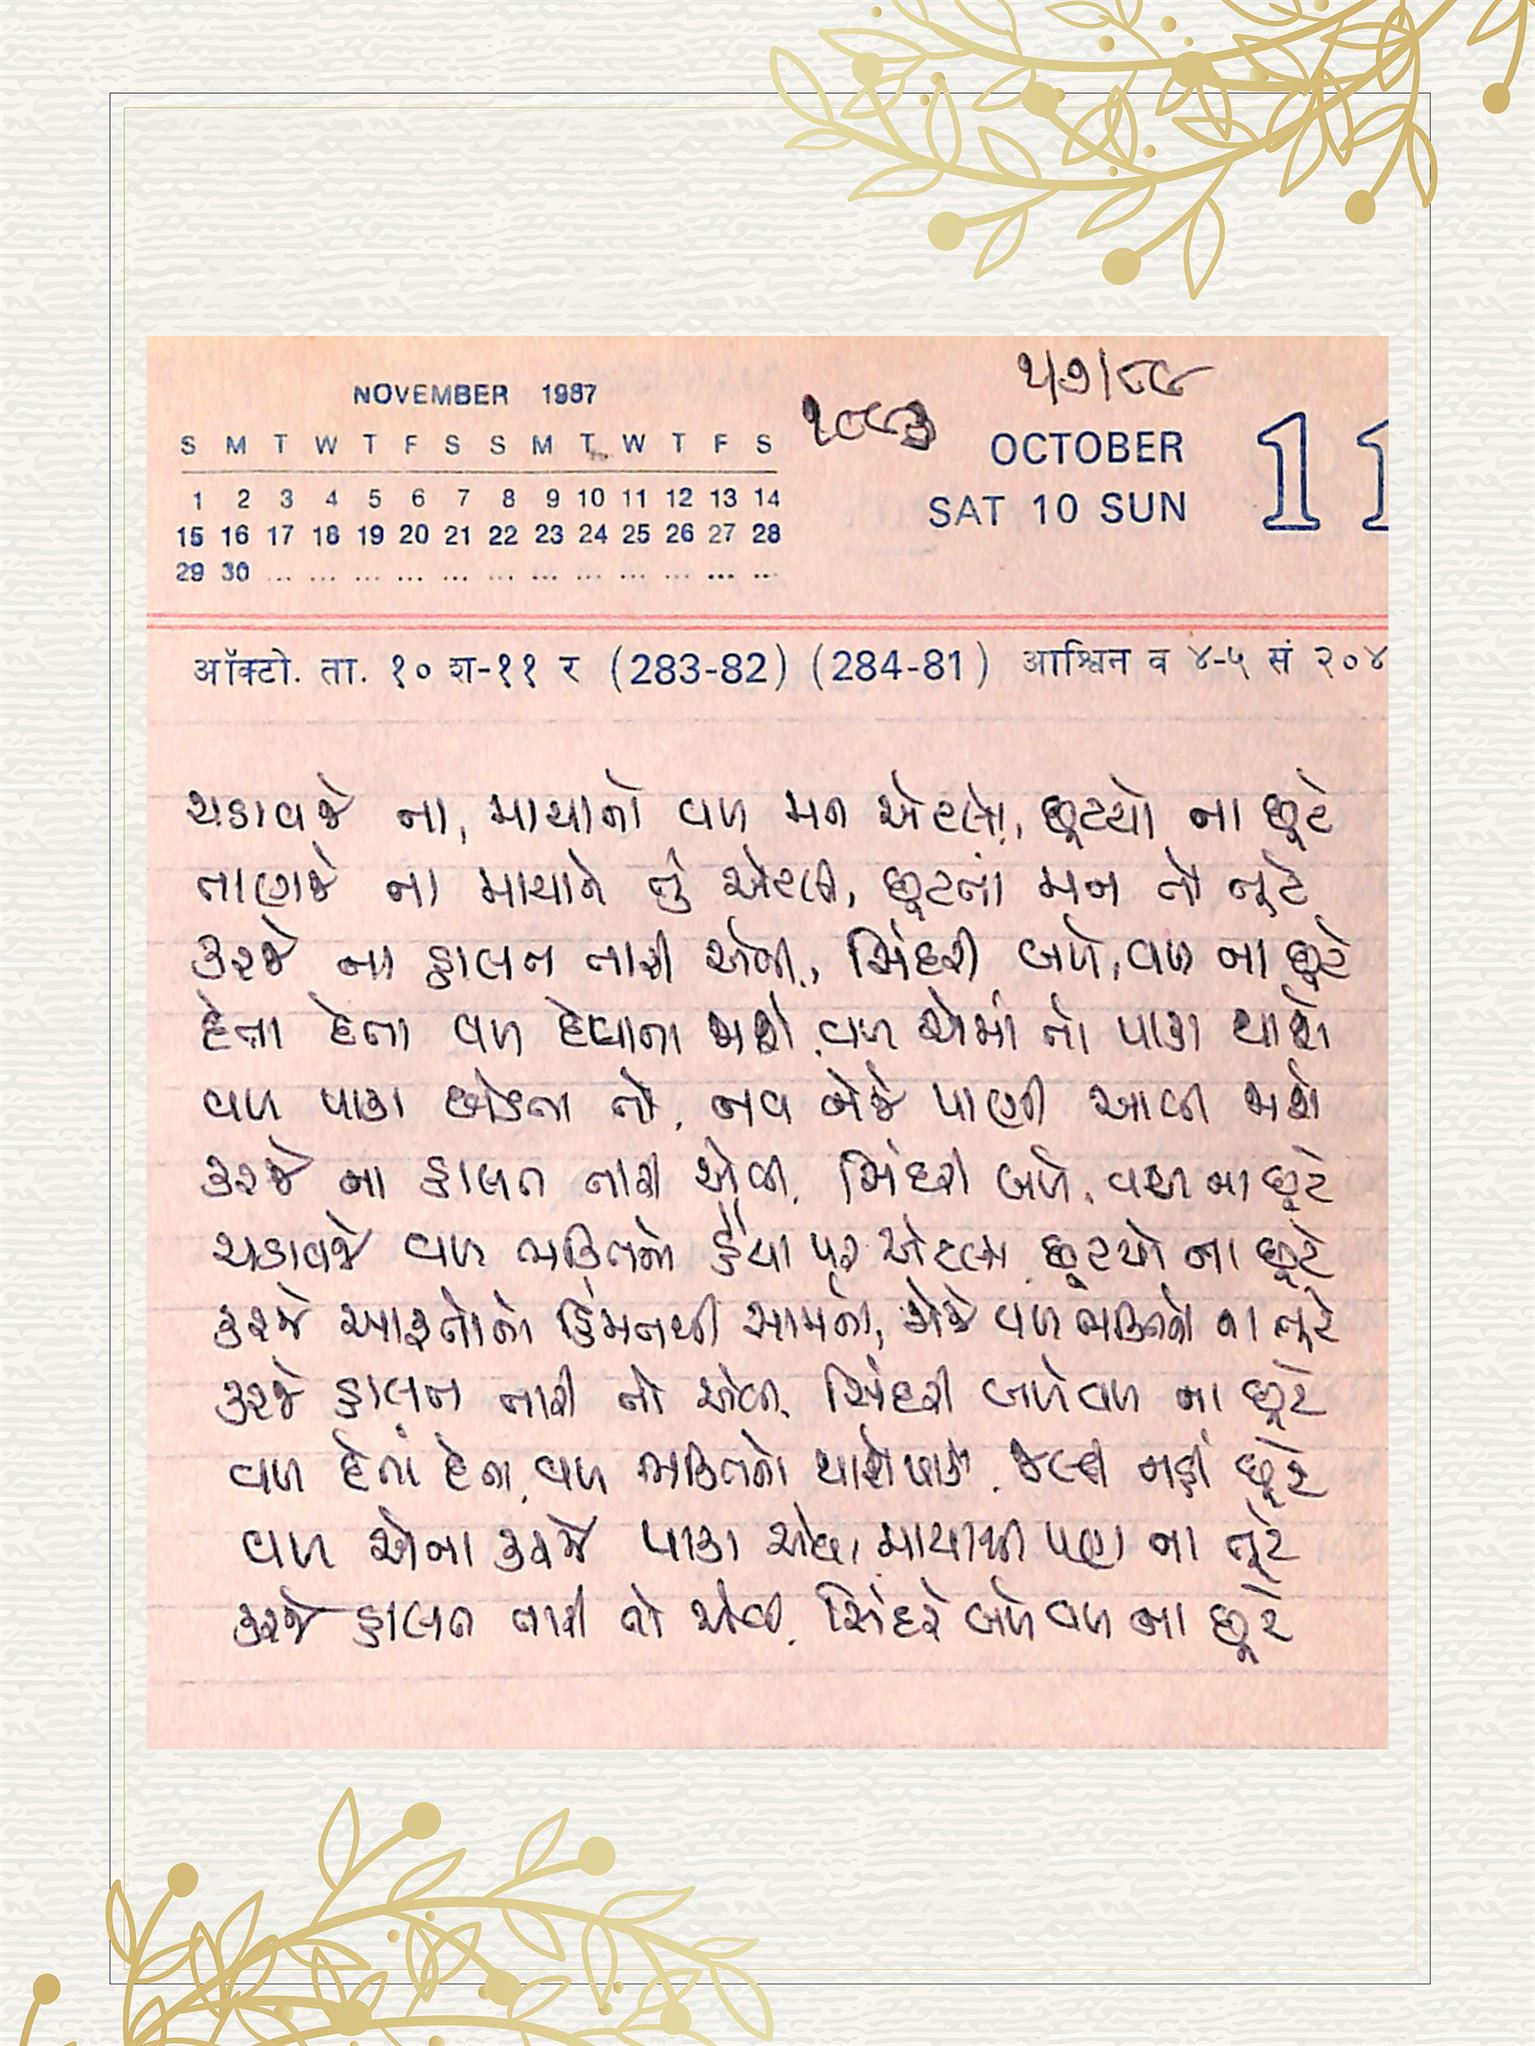 ૫/૭/૮૮
NOVEMBER 1987
૧૦૮૩
S M T W T F S S M T W T F S
1 2 3 4 5 6 7 8 9 10 11 12 13 14
15 16 17 18 19 20 21 22 23 24 25 26 27 28
29 30 ... ... ... ... ... ... ... ... ... ... ... ...
OCTOBER
SAT 10 SUN
11
ऑक्टो. ता. १० श-११ र (283-82) (284-81) आश्विन व ४-५ सं २०४
ચડાવજે ના, માયાનો વળ મન એટલો, છૂટયો ના છૂટે
તાણજે ના માયાને તું એટલી, છૂટતાં મન તો તૂટે
કરજે ના હાલત તારી એવી, સિંદરી બળે, વળ ના છૂટે
દેતા દેતા વળ દેવાતા જાશે, વળ એમાં તો પાકા થાશે
વળ પાકા છોડતા તો, નવ નેજે પાણી આવી જાશે
કરજે ના હાલત તારી એવી, સિંદરી બળે, વળ ના છૂટે
ચડાવજે વળ ભક્તિનો હૈયા પર એટલો, છૂટયો ના છૂટે
કરજે આફતોનો હિંમતથી સામનો, જોજે વળ ભક્તિનો ના તૂટે
કરજે હાલત તારી તો એવી, સિંદરી બળે વળ ના છૂટે
વળ દેતાં દેતા, વળ ભક્તિનો થાશે પાકો, જલ્દી નહીં છૂટે
વળ એના કરજે પાકા એવા, માયાથી પણ ના તૂટે
કરજે હાલત તારી તો એવી, સિંદરી બળે વળ ના છૂટે